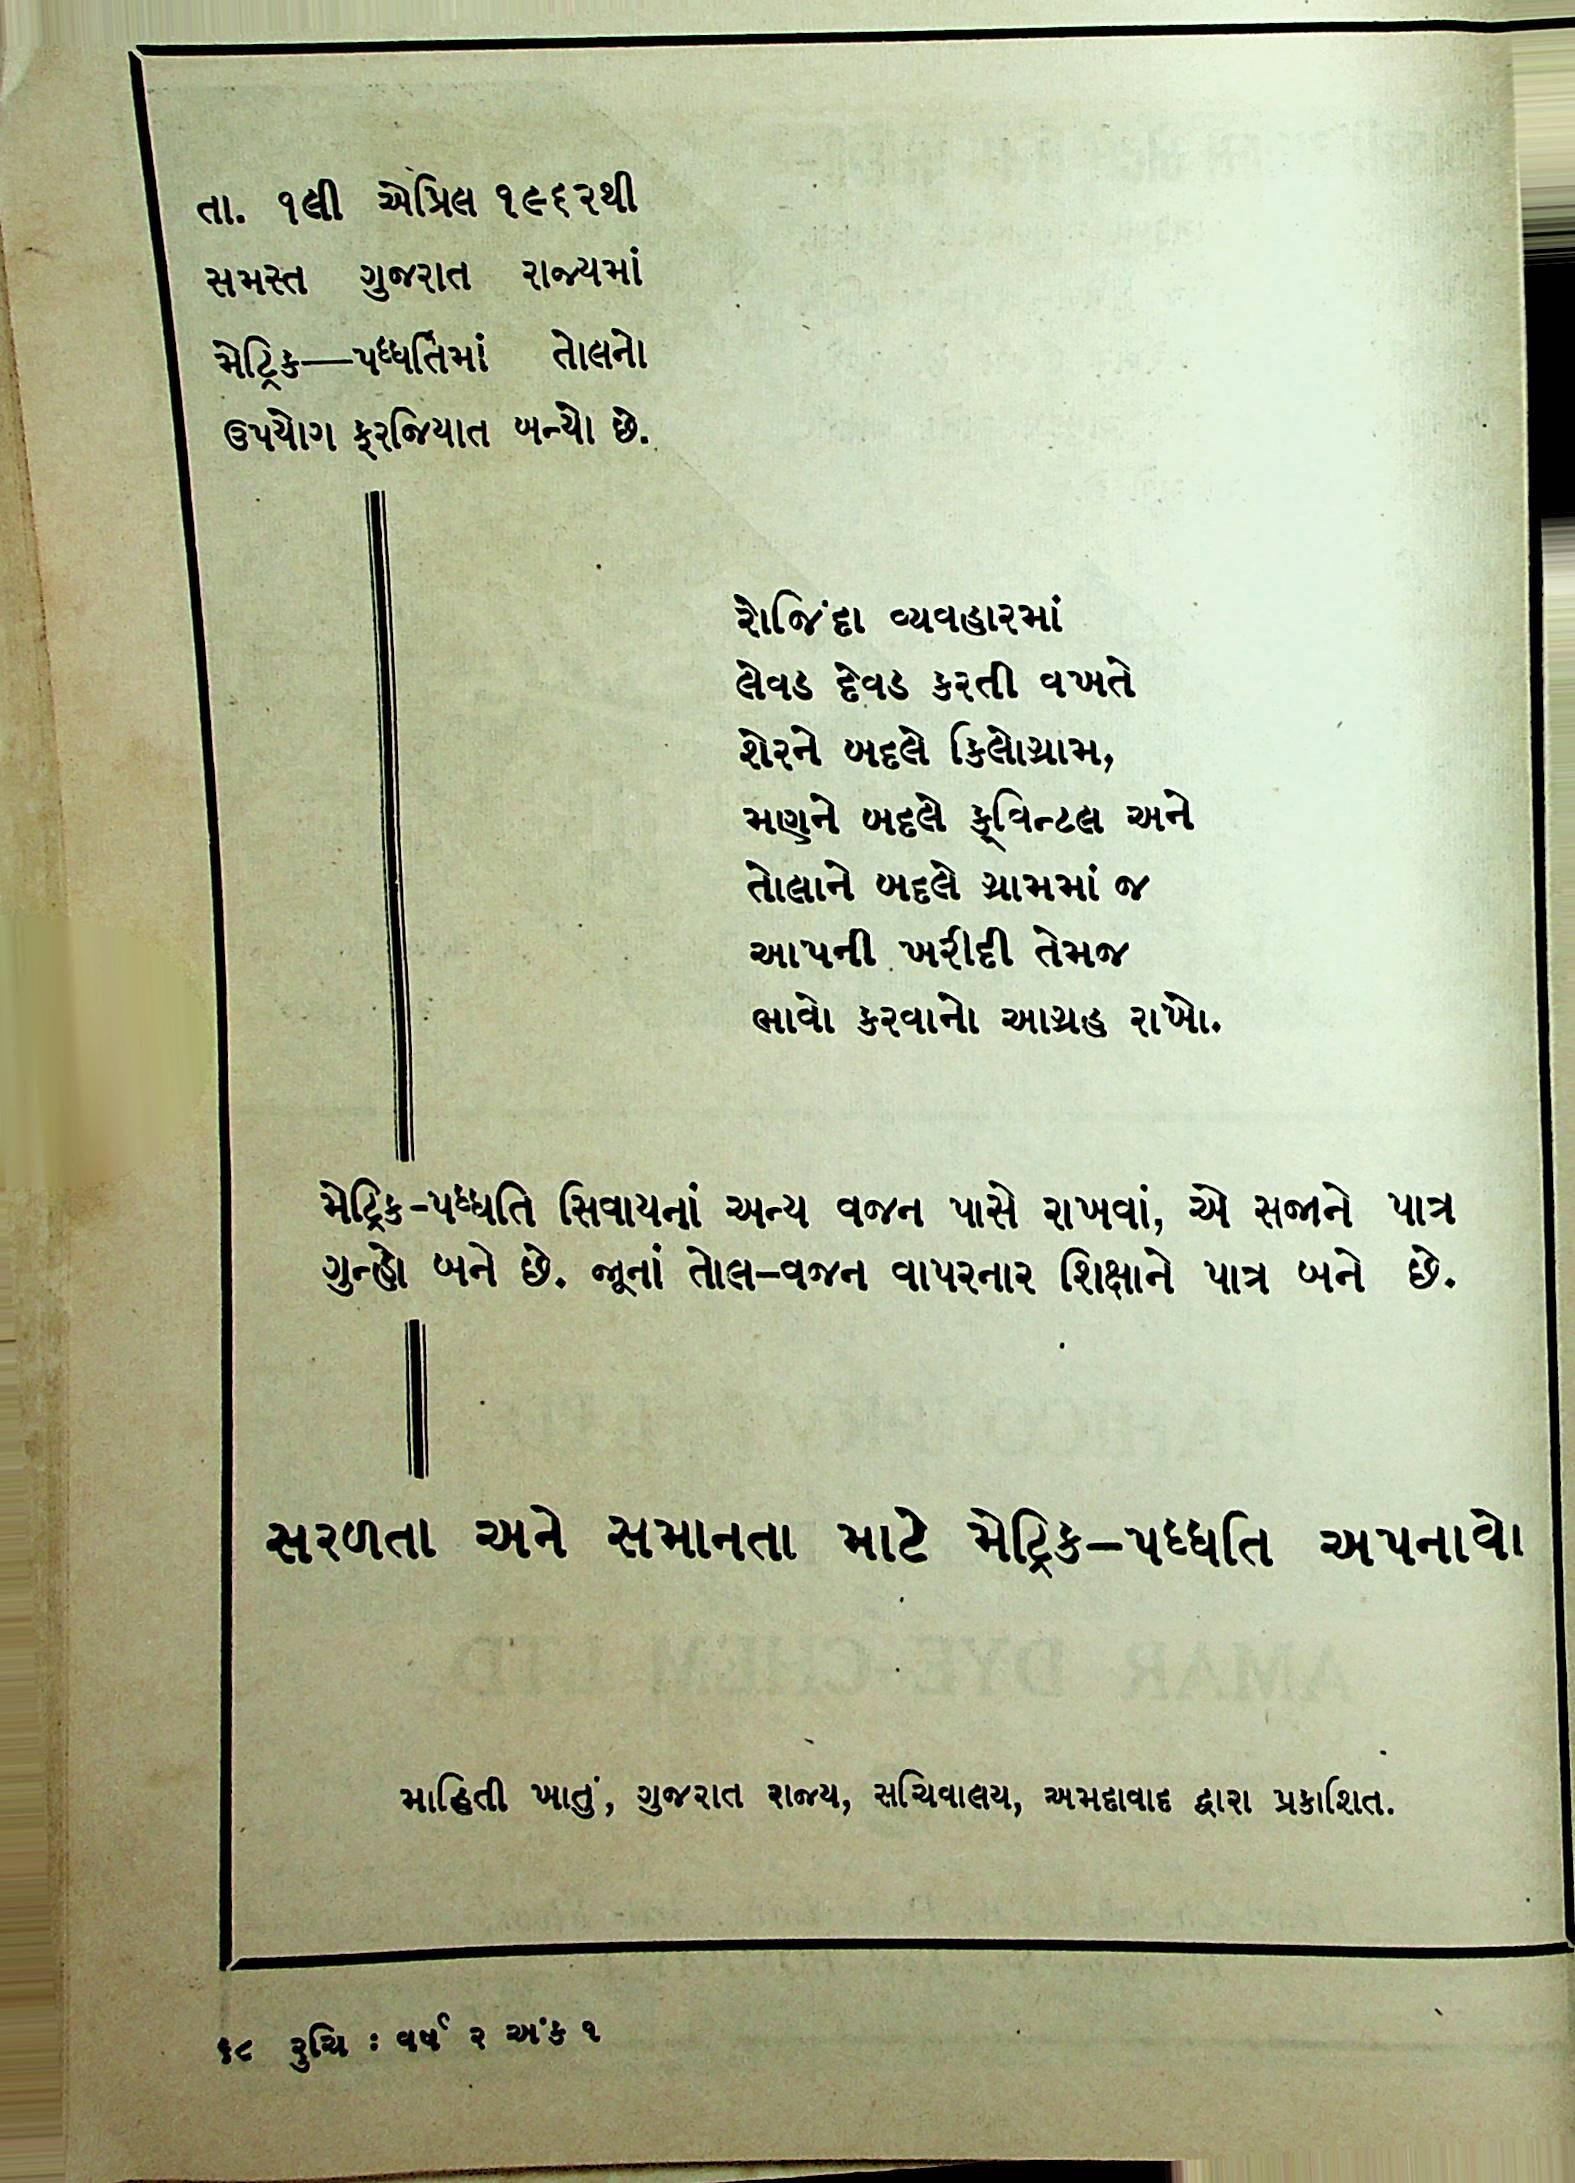 તા. ૧લી એપ્રિલ ૧૯૬૨થી
સમસ્ત ગુજરાત રાજ્યમાં
મેટ્રિક—પધ્ધતિમાં તોલનો
ઉપયોગ ફરજિયાત બન્યો છે.
રોજિંદા વ્યવહારમાં
લેવડ દેવડ કરતી વખતે
શેરને બદલે કિલોગ્રામ,
મણને બદલે ક્વિન્ટલ અને
તોલાને બદલે ગ્રામમાં જ
આપની ખરીદી તેમજ
ભાવો કરવાનો આગ્રહ રાખો.
મેટ્રિક-પધ્ધતિ સિવાયનાં અન્ય વજન પાસે રાખવાં, એ સજાને પાત્ર
ગુન્હો બને છે. જૂનાં તોલ–વજન વાપરનાર શિક્ષાને પાત્ર બને છે.
સરળતા અને સમાનતા માટે મેટ્રિક–પધ્ધતિ અપનાવો
માહિતી ખાતું, ગુજરાત રાજ્ય, સચિવાલય, અમદાવાદ દ્વારા પ્રકાશિત.
૬૮ રુચિ : વર્ષ ૨ અંક ૧